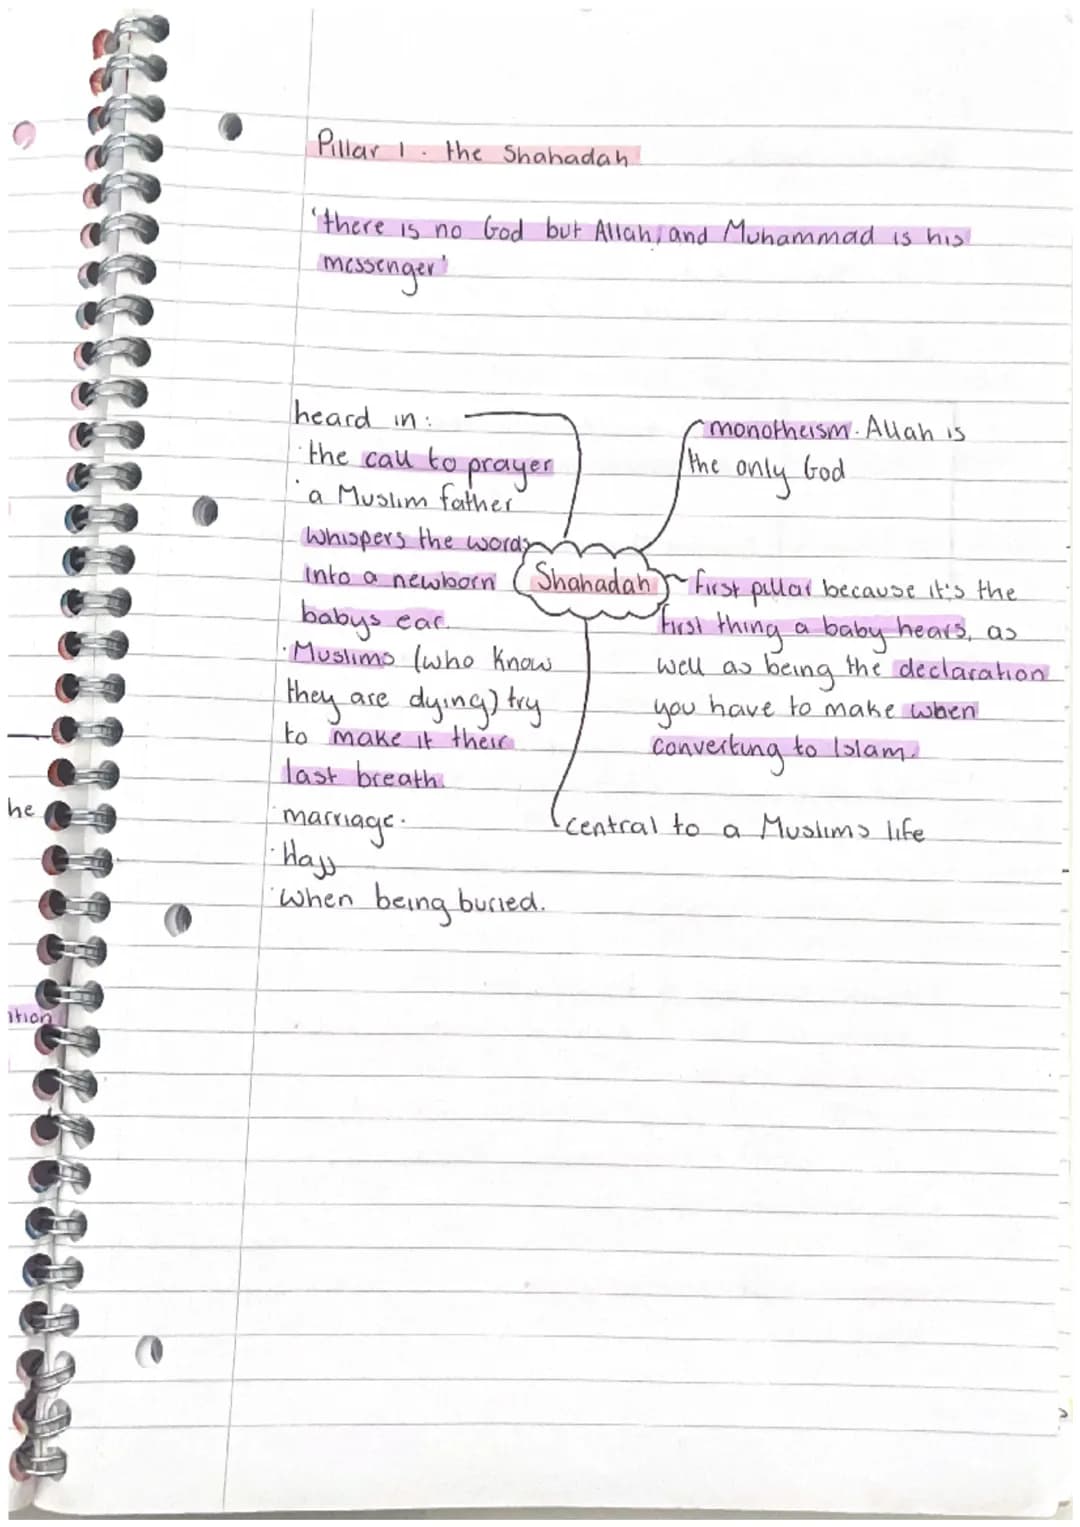 Pillar 1. the Shahadah
'there is no God but Allah, and Muhammad is his
messenger'
heard in:
·the call to prayer
·a Muslim father
whispers the words
into a newborn
babys ear.
·Muslims (who know
they are dying) try
to make it their
last breath.
·marriage.
·Hajj
·when being buried.
monotheism. Allah is
the only God
Shahadah
first pillar because it's the
first thing a baby hears, as
well as being the declaration
you have to make when
converting to Islam.
central to a Muslims life
he
ation